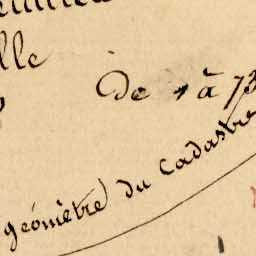 lle
De 1 à 73
géomètre du Cadastre